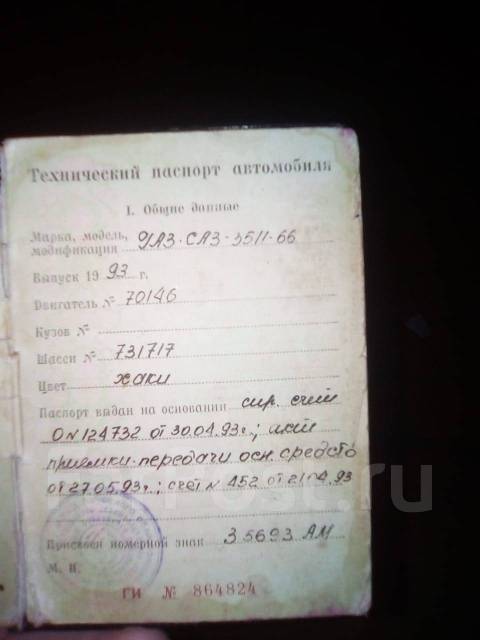 Технический паспорт автомобиля
I. Общие данные
Марка, модель,
модификация ГАЗ-САЗ-3511-66
Выпуск 1993 г.
Двигатель № 70146
Кузов №
Шасси № 731717
Цвет хаки
Паспорт выдан на основании спр. счёт
О № 124732 от 30.04.93г.; акт
приемки-передачи осн. средств
от 27.05.93г.; счёт № 452 от 21.04.93
Присвоен номерной знак 3 5693 АМ
М. П.
ГИ № 864824